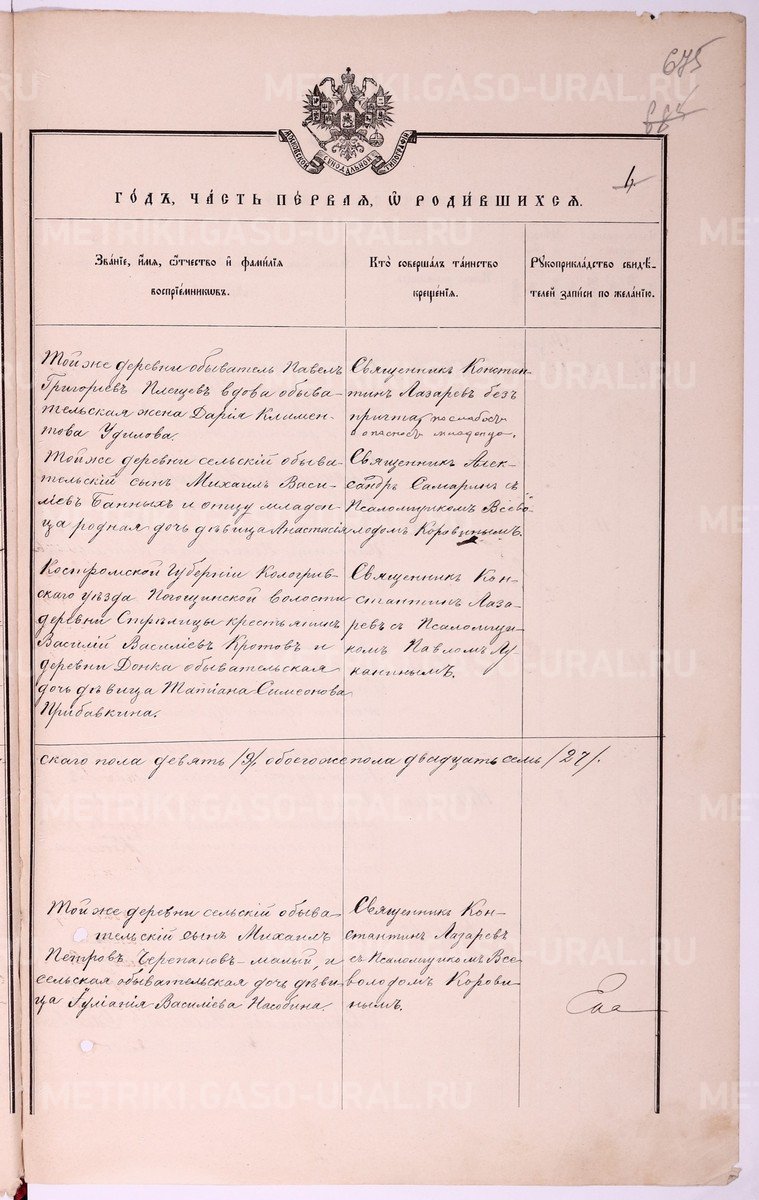 675
МОСКОВСКОЙ СУНОДАЛЬНОЙ ТИПОГРАФІИ
4
ГО́ДЪ, ЧА́СТЬ ПЕ́РВАЯ, Ѡ҆ РОДИ́ВШИХСЯ.
Зва́нїе, и҆́мя, ѻ҆́тчество и҆ фами́лїѧ
воспрїе́мникѡвъ.
Кто̀ соверша́лъ та́инство
креще́нїѧ.
Рꙋкоприкла́дство свидѣ́-
телей за́писи по жела́нїю.
Той же деревни обыватель Павелъ
Григоріевъ Плещевъ вдова обыва-
тельская жена Дарія Климен-
това Удилова.
Священникъ Констан-
тинъ Лазаревъ безъ
причта по слабос.
опасност младенца.
Той же деревни сельскій обыва-
тельскій сынъ Михаилъ Васи-
ліевъ Банныхъ и отцу младен-
ца родная дочь дѣвица Анастасія
Священникъ Алек-
сандръ Самаринъ съ
Псаломщикомъ Всево-
лодомъ Коровинымъ.
Костромской Губерніи Кологрив-
скаго уѣзда Погощинской волости
деревни Стрѣлицы крестьянинъ
Василій Василіевъ Кротовъ и
деревни Донка обывательская
дочь дѣвица Татіана Симеонова
Прибавкина.
Священникъ Кон-
стантинъ Лаза-
ревъ съ Псаломщи-
комъ Павломъ Лу
каниным.
скаго пола девять /9/. обоего же пола двадцать семь /27/.
Той же деревни сельскій обыва-
тельскій сынъ Михаилъ
Петровъ Черепановъ - малый, и
сельская обывательская дочь дѣви-
ца Іуліанія Василіева Насобина.
Священникъ Кон-
стантинъ Лазаревъ
съ Псаломщикомъ Все
володомъ Корови-
нымъ.
METRIKI.GASO-URAL.RU